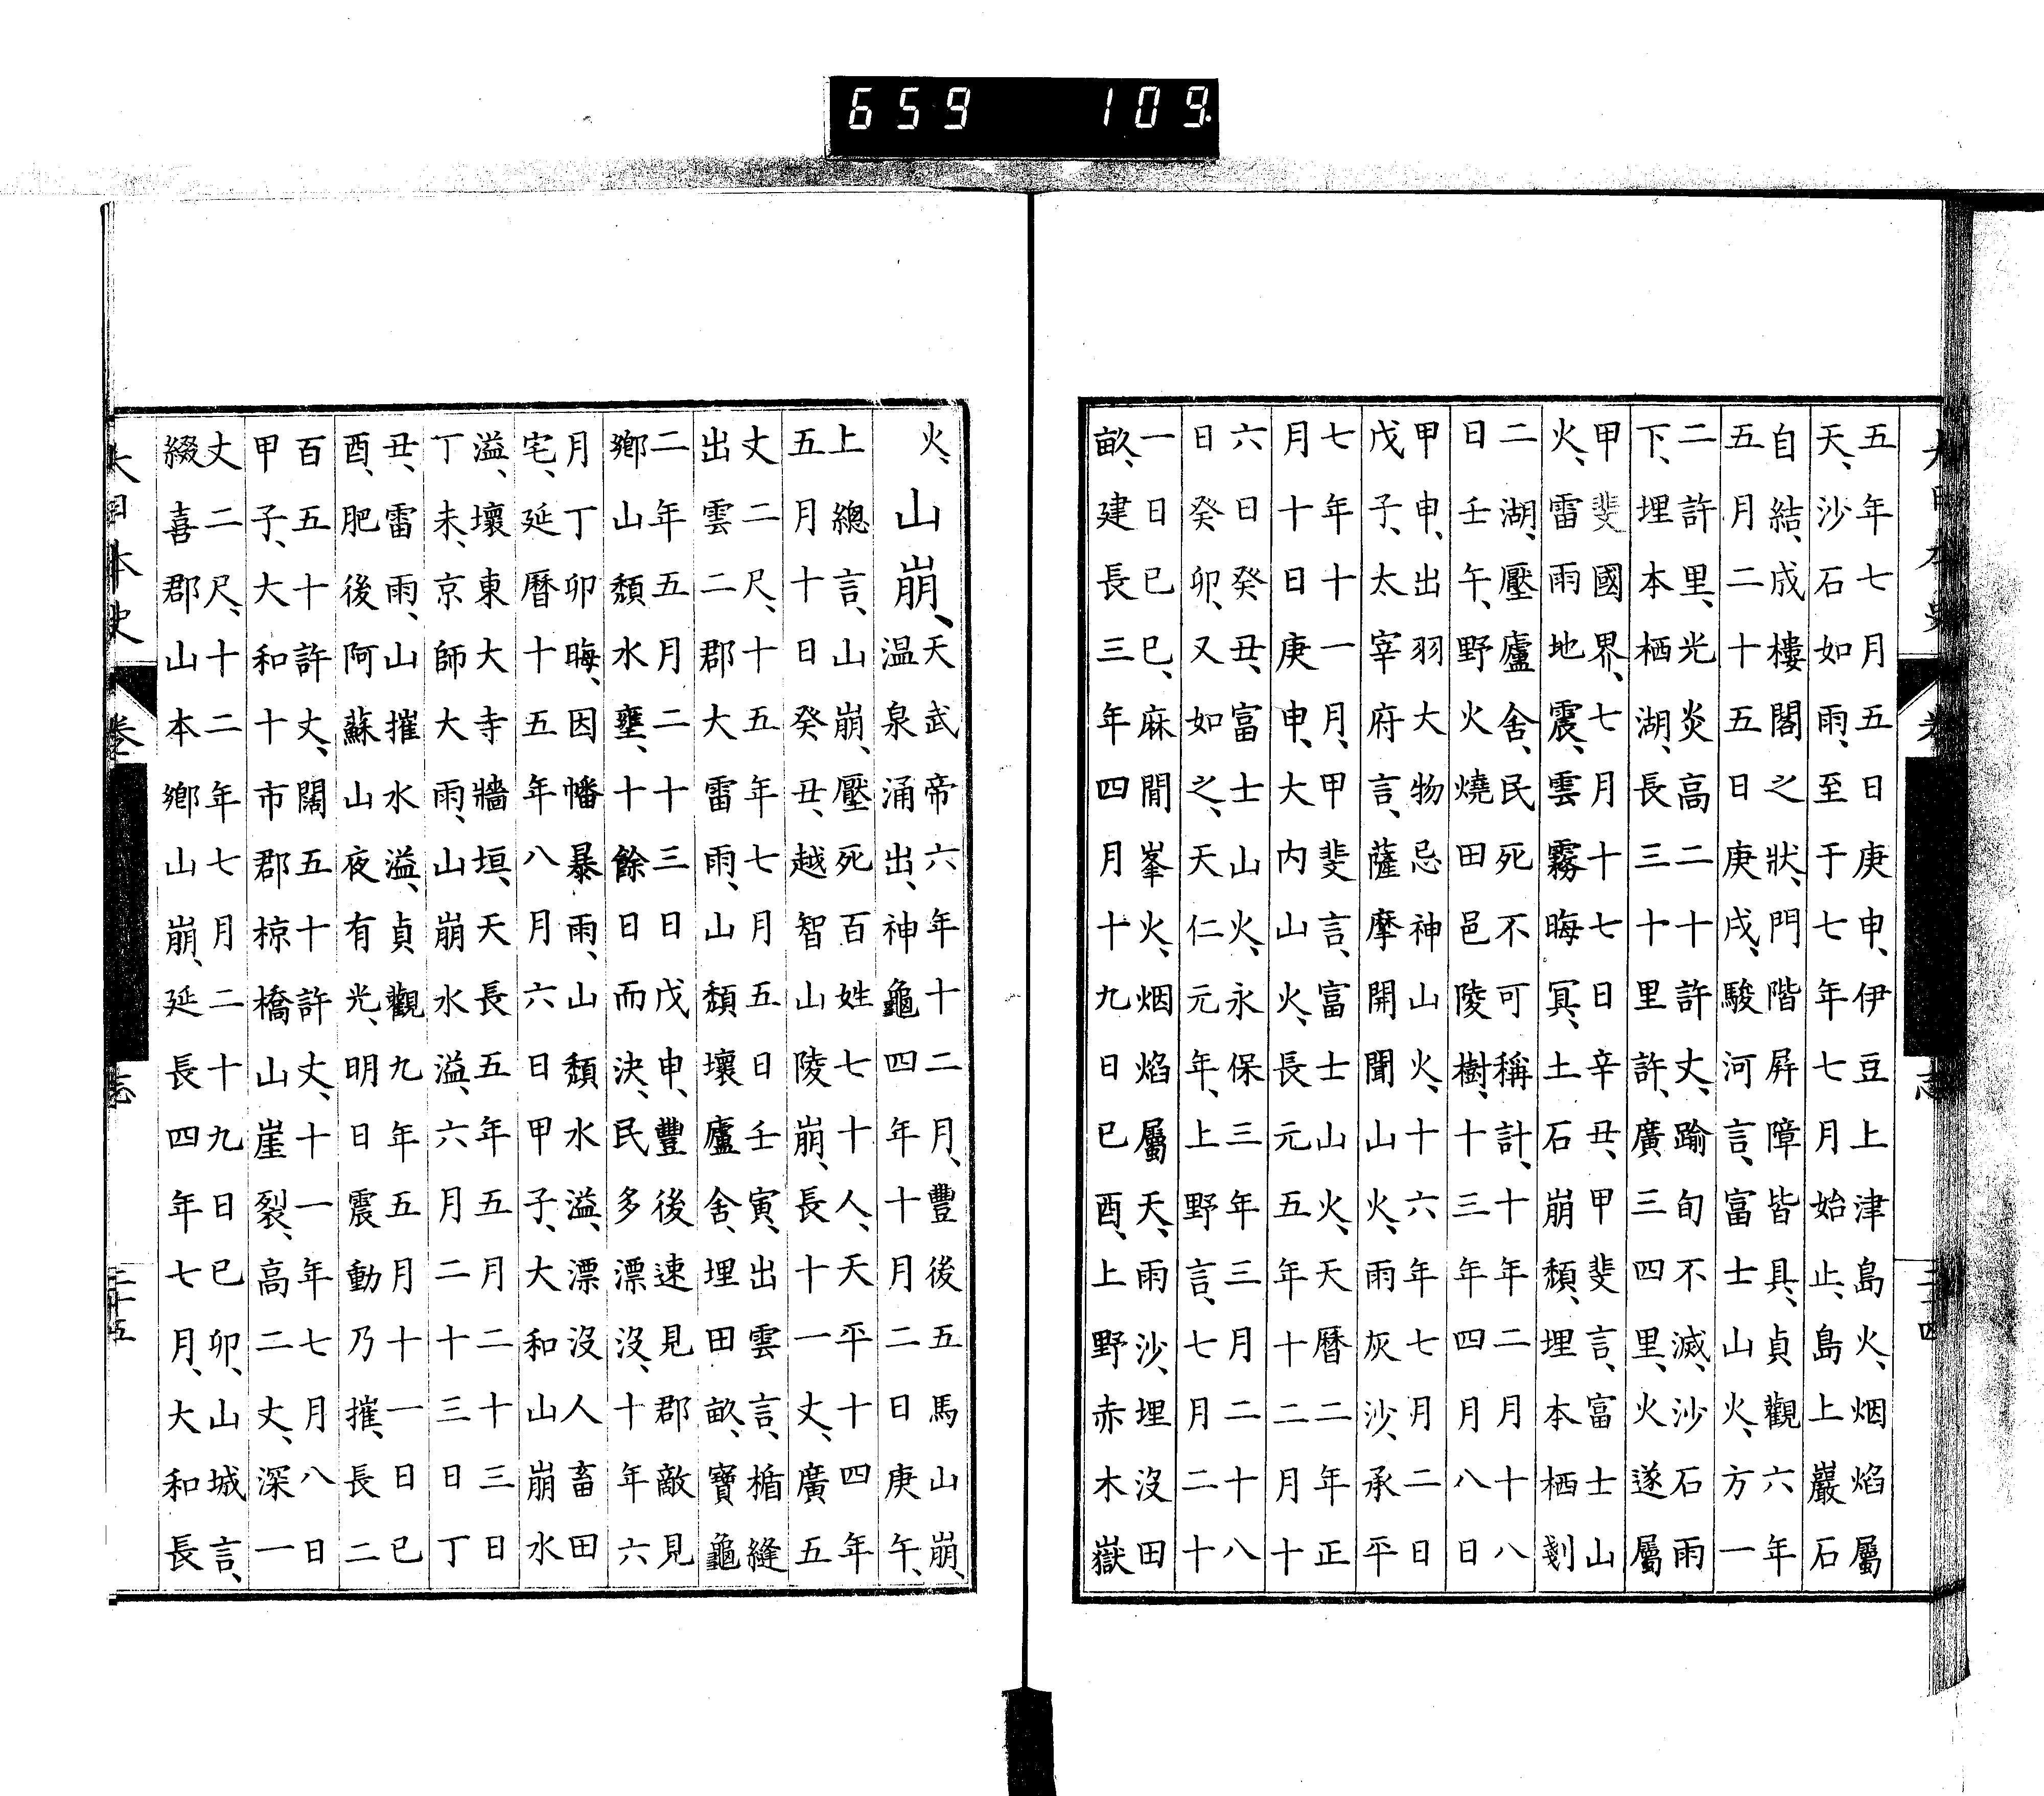 659 109.
五年七月五日庚申、伊豆上津島火、烟焰屬
天、沙石如雨、至于七年七月始止、島上巖石
自結、成樓閣之狀、門階屛障皆具、貞觀六年
五月二十五日庚戌、駿河言、富士山火、方一
二許里、光炎高二十許丈、踰旬不滅、沙石雨
下、埋本栖湖、長三十里許、廣三四里、火遂屬
甲斐國界、七月十七日辛丑、甲斐言、富士山
火、雷雨地震、雲霧晦冥、土石崩頽、埋本栖剗
二湖、壓廬舍、民死不可稱計、十年二月十八
日壬午、野火燒田邑陵樹、十三年四月八日
甲申、出羽大物忌神山火、十六年七月二日
戊子、太宰府言、薩摩開聞山火、雨灰沙、承平
七年十一月、甲斐言、富士山火、天曆二年正
月十日庚申、大內山火、長元五年十二月十
六日癸丑、富士山火、永保三年三月二十八
日癸卯、又如之、天仁元年、上野言、七月二十
一日己巳、麻間峯火、烟焰屬天、雨沙、埋沒田
畝、建長三年四月十九日已酉、上野赤木嶽
大日本史 志 三十四
火、
山崩、
天武帝六年十二月、豐後五馬山崩、
温泉涌出、神龜四年十月二日庚午、
上總言、山崩、壓死百姓七十人、天平十四年
五月十日癸丑、越智山陵崩、長十一丈、廣五
丈二尺、十五年七月五日壬寅、出雲言、楯縫
出雲二郡大雷雨、山頽壞廬舍、埋田畝、寶龜
二年五月二十三日戊申、豐後速見郡敵見
鄉山頽水壅、十餘日而決、民多漂沒、十年六
月丁卯晦、因幡暴雨、山頽水溢、漂沒人畜田
宅、延曆十五年八月六日甲子、大和山崩水
溢、壞東大寺牆垣、天長五年五月二十三日
丁未、京師大雨、山崩水溢、六月二十三日丁
丑、雷雨、山摧水溢、貞觀九年五月十一日已
酉、肥後阿蘇山夜有光、明日震動乃摧、長二
百五十許丈、闊五十許丈、十一年七月八日
甲子、大和十市郡椋橋山崖裂、高二丈、深一
丈二尺、十二年七月二十九日已卯、山城言、
綴喜郡山本鄉山崩、延長四年七月、大和長
大日本史 卷 志 三十五